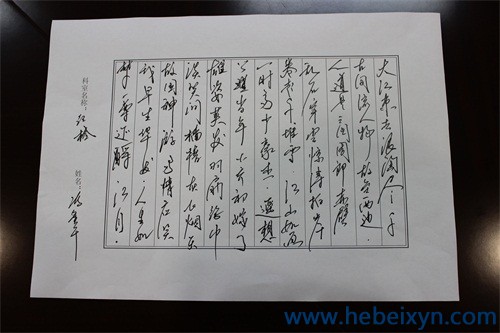 大江东去浪淘尽千
古风流人物.故垒西边.
人道是三国周郎赤壁
乱石穿空惊涛拍岸
卷起千堆雪.江山如画
一时多少豪杰.遥想
公瑾当年小乔初嫁了
雄姿英发羽扇纶巾
谈笑间樯橹灰飞烟灭
故国神游多情应笑
我早生华发.人生如
梦一尊还酹江月.
科室名称：
姓名：
www.hebeixyn.com